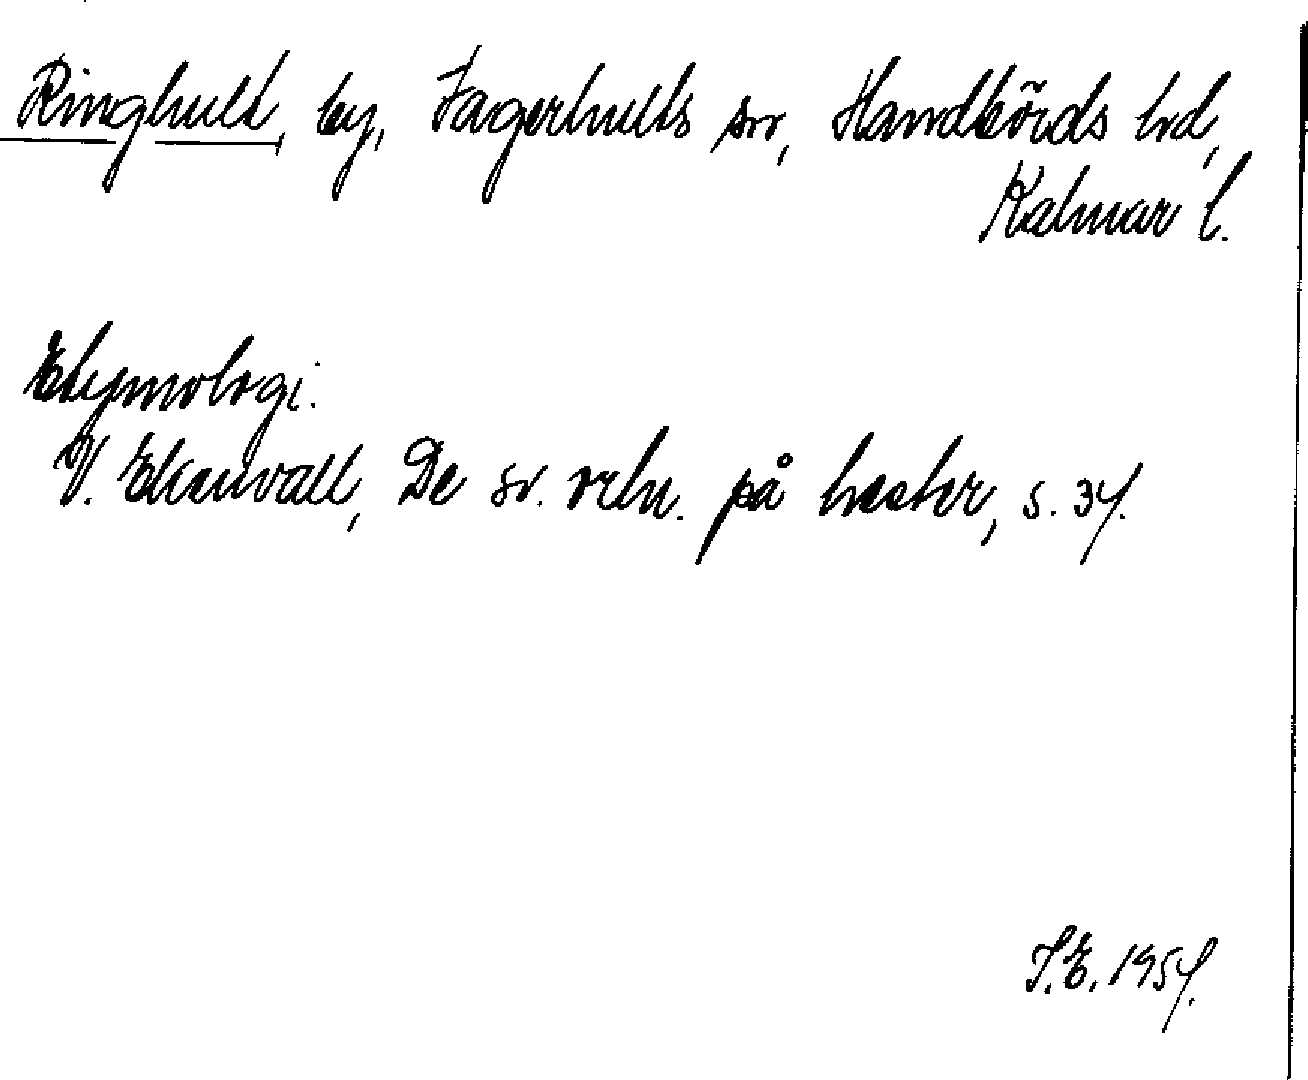 Ringhult, by, Fagerhults sn, Handbörds hd,
Kalmar l.
Etymologi.
V. Ekenvall, De sv. ortn. på hester, s. 34.
I.E. 1954.